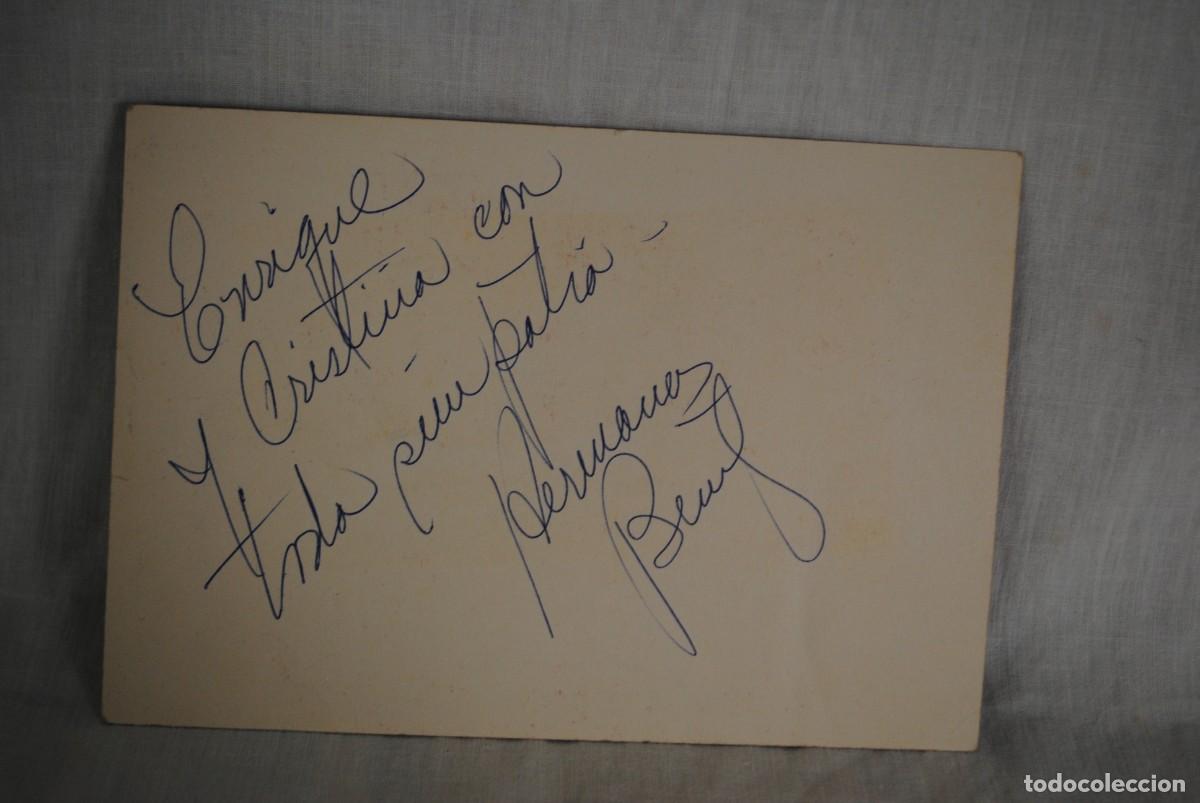 Enrique
Y Cristina con
toda simpatia -
Hermanos
todocoleccion